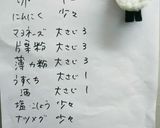 卵
にんにく 少々
マヨネーズ 大さじ3
片栗粉 大さじ3
薄力粉 大さじ3
うすくち 大さじ1
酒 大さじ1
塩・こしょう 少々
ナツメグ 少々